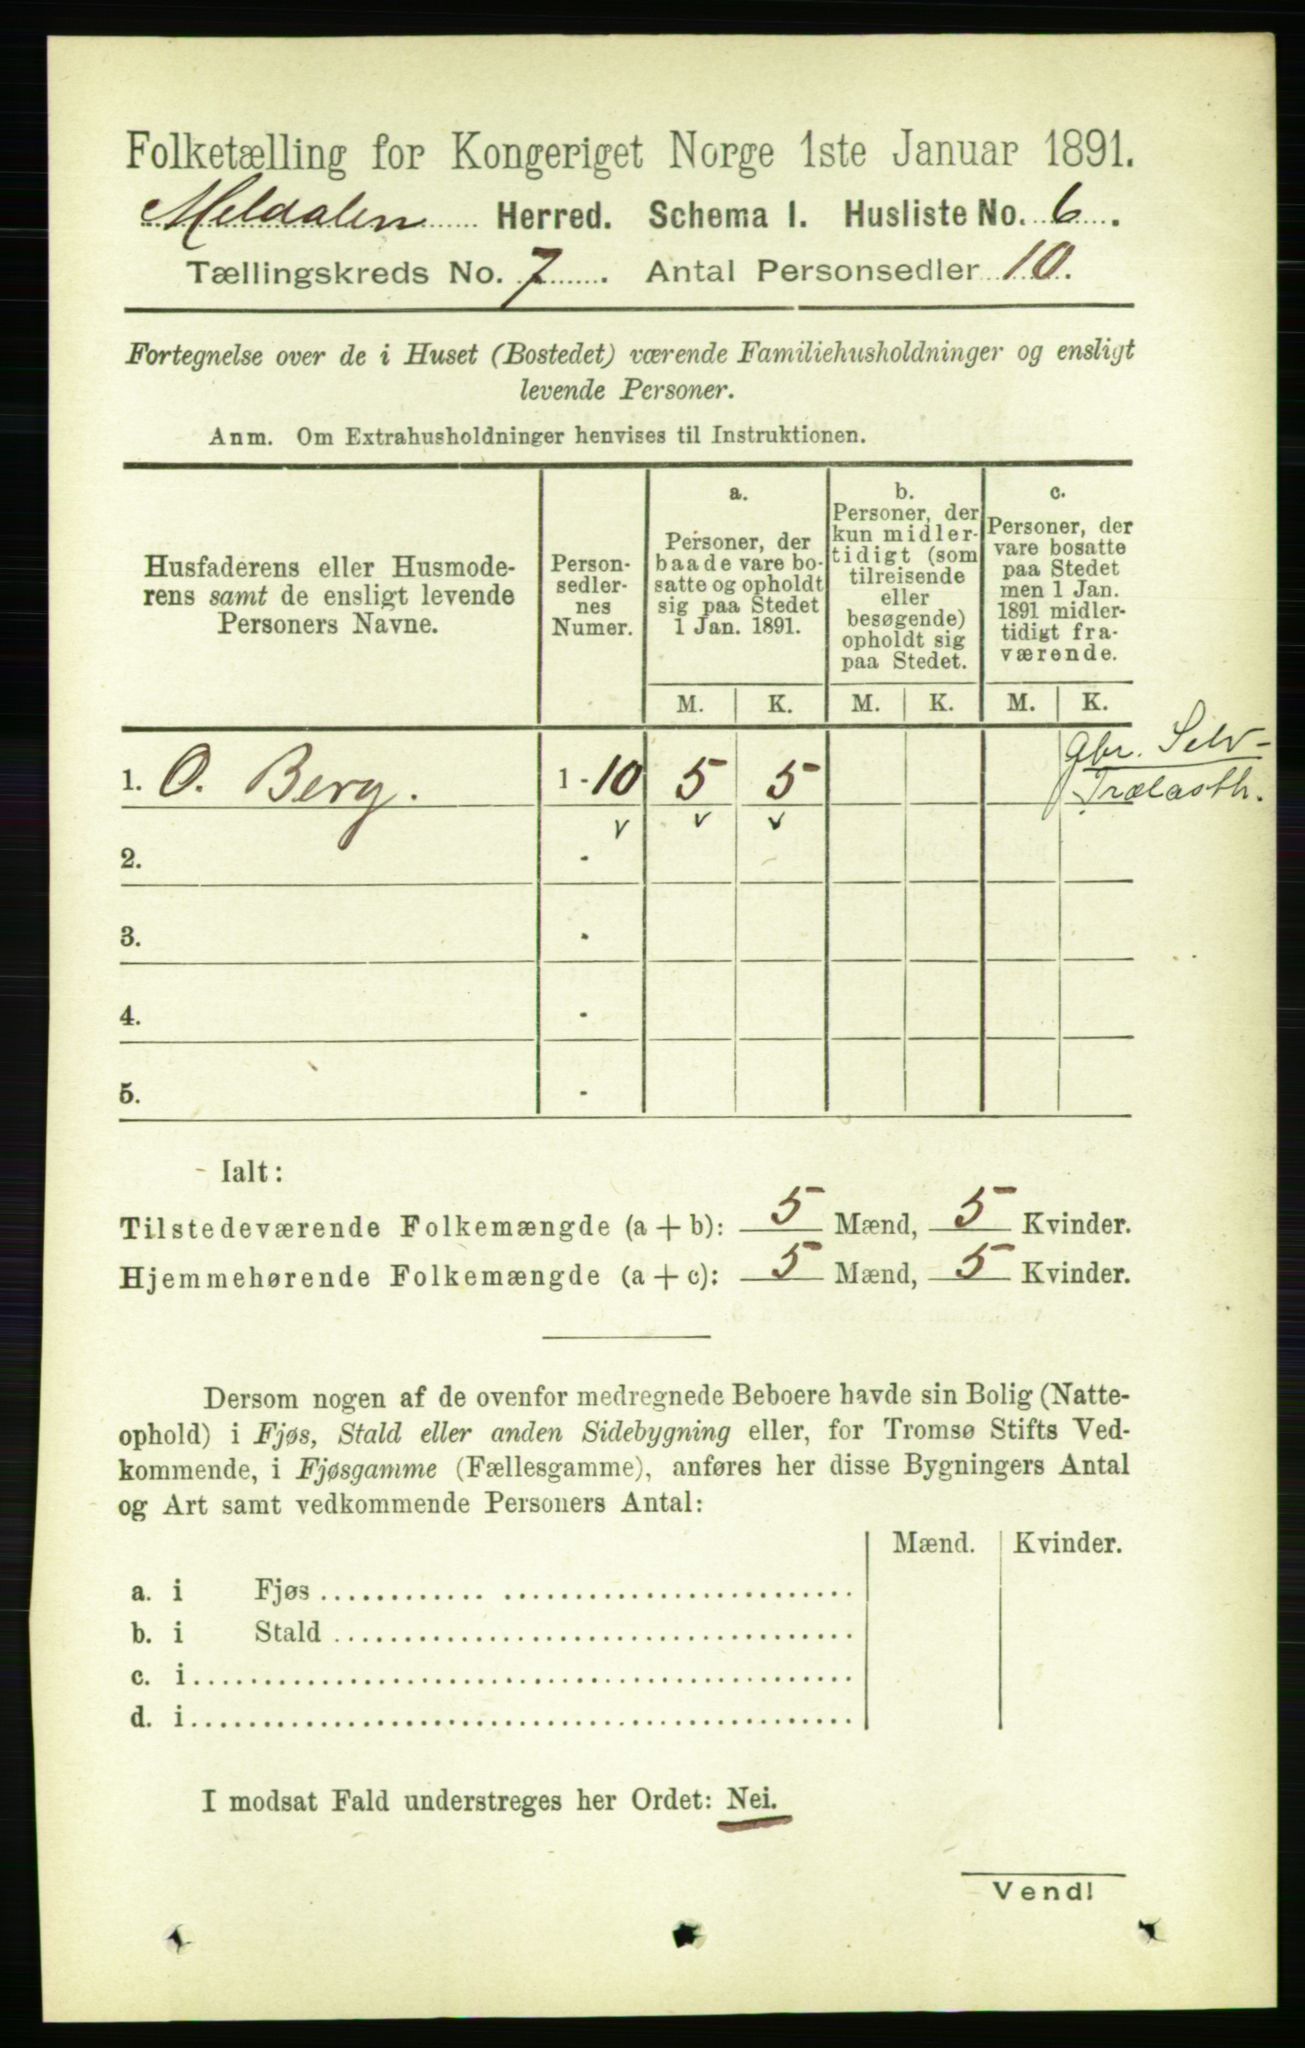 Folketælling for Kongeriget Norge 1ste Januar 1891.
Meldalen Herred. Schema I. Husliste No. 6.
Tællingskreds No. 7. Antal Personsedler 10.
Fortegnelse over de i Huset (Bostedet) værende Familiehusholdninger og ensligt
levende Personer.
Anm. Om Extrahusholdninger henvises til Instruktionen.
Husfaderens eller Husmode-
rens samt de ensligt levende
Personers Navne.
Person-
sedler-
nes
Numer.
a.
Personer, der
baade vare bo-
satte og opholdt
sig paa Stedet
1 Jan. 1891.
b.
Personer, der
kun midler-
tidigt (som
tilreisende
eller
besøgende)
opholdt sig
paa Stedet.
c.
Personer, der
vare bosatte
paa Stedet
men 1 Jan.
1891 midler-
tidigt fra-
værende.
M. K. M. K. M. K.
Gbr. Selv-
1. O. Berg. 1-10 5 5 Trælasth.
2. -
3. -
4. -
5. -
Ialt:
Tilstedeværende Folkemængde (a + b): 5 Mænd, 5 Kvinder.
Hjemmehørende Folkemængde (a + c): 5 Mænd, 5 Kvinder.
Dersom nogen af de ovenfor medregnede Beboere havde sin Bolig (Natte-
ophold) i Fjøs, Stald eller anden Sidebygning eller, for Tromsø Stifts Ved-
kommende, i Fjøsgamme (Fællesgamme), anføres her disse Bygningers Antal
og Art samt vedkommende Personers Antal:
Mænd. Kvinder.
a. i Fjøs
b. i Stald
c. i
d. i
I modsat Fald understreges her Ordet: Nei.
Vend!